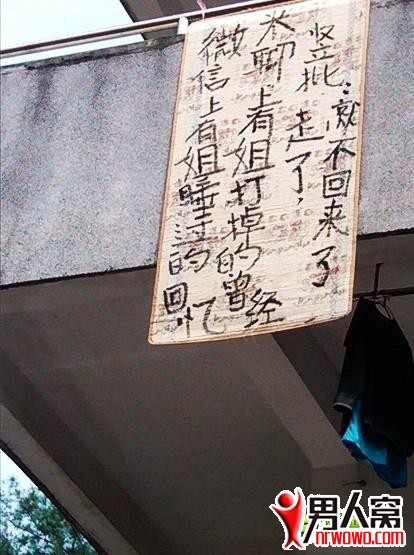 竖批:走了,就不回来了
米聊上有姐打掉的曾经
微信上有姐睡过的回忆
男人窝
nrwowo.com